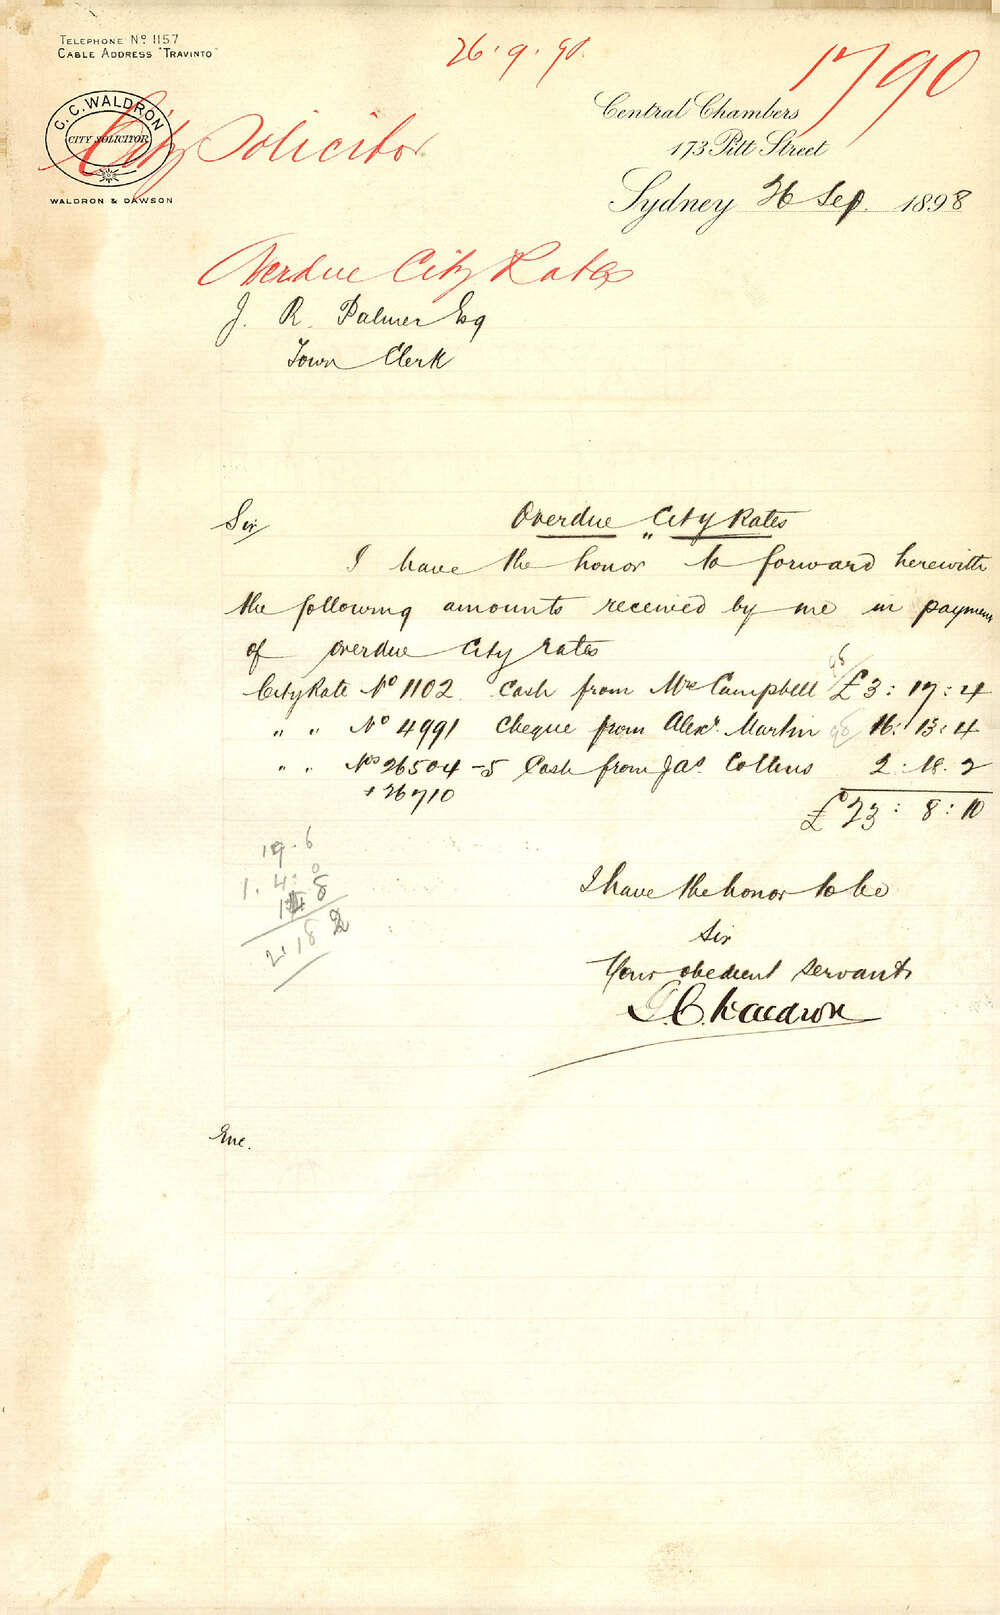 TELEPHONE No. 1157
CABLE ADDRESS "TRAVINTO"
26.9.98.
1790
G. C. WALDRON
CITY SOLICITOR
WALDRON & DAWSON
City Solicitor
Central Chambers
173 Pitt Street
Sydney 26 Sep. 1898
Overdue City Rates
J. R. Palmer Esq
Town Clerk
Sir Overdue City Rates
I have the honor to forward herewith
the following amounts received by me in payment
of overdue City rates
City Rate No 1102 Cash from Mrs Campbell 98 £3:17:4
" " No 4991 Cheque from Alexr. Martin 98 16:13:4
" " Nos 26504-5 Cash from Jas. Collins 2.18.2
+ 26710
£23:8:10
19.6
1.4.0
14 8
2.18 2
I have the honor to be
Sir
Your obedient servant
G.C. Waldron
Enc.